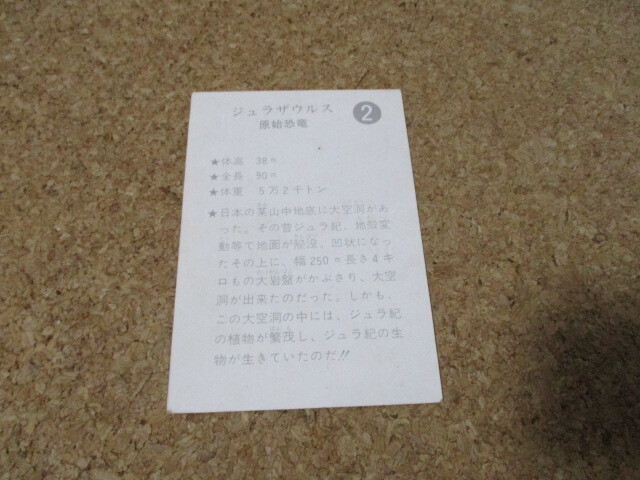 ジュラザウルス
2
原始恐竜
★体高 38m
★全長 90m
★体重 5万2千トン
★日本の某山中地底に大空洞があ
った。その昔ジュラ紀、地殻変
動等で地面が陥没、凹状になっ
たその上に、幅250m長さ4キ
ロもの大岩盤がかぶさり、大空
洞が出来たのだった。しかも、
この大空洞の中には、ジュラ紀
の植物が繁茂し、ジュラ紀の生
物が生きていたのだ!!